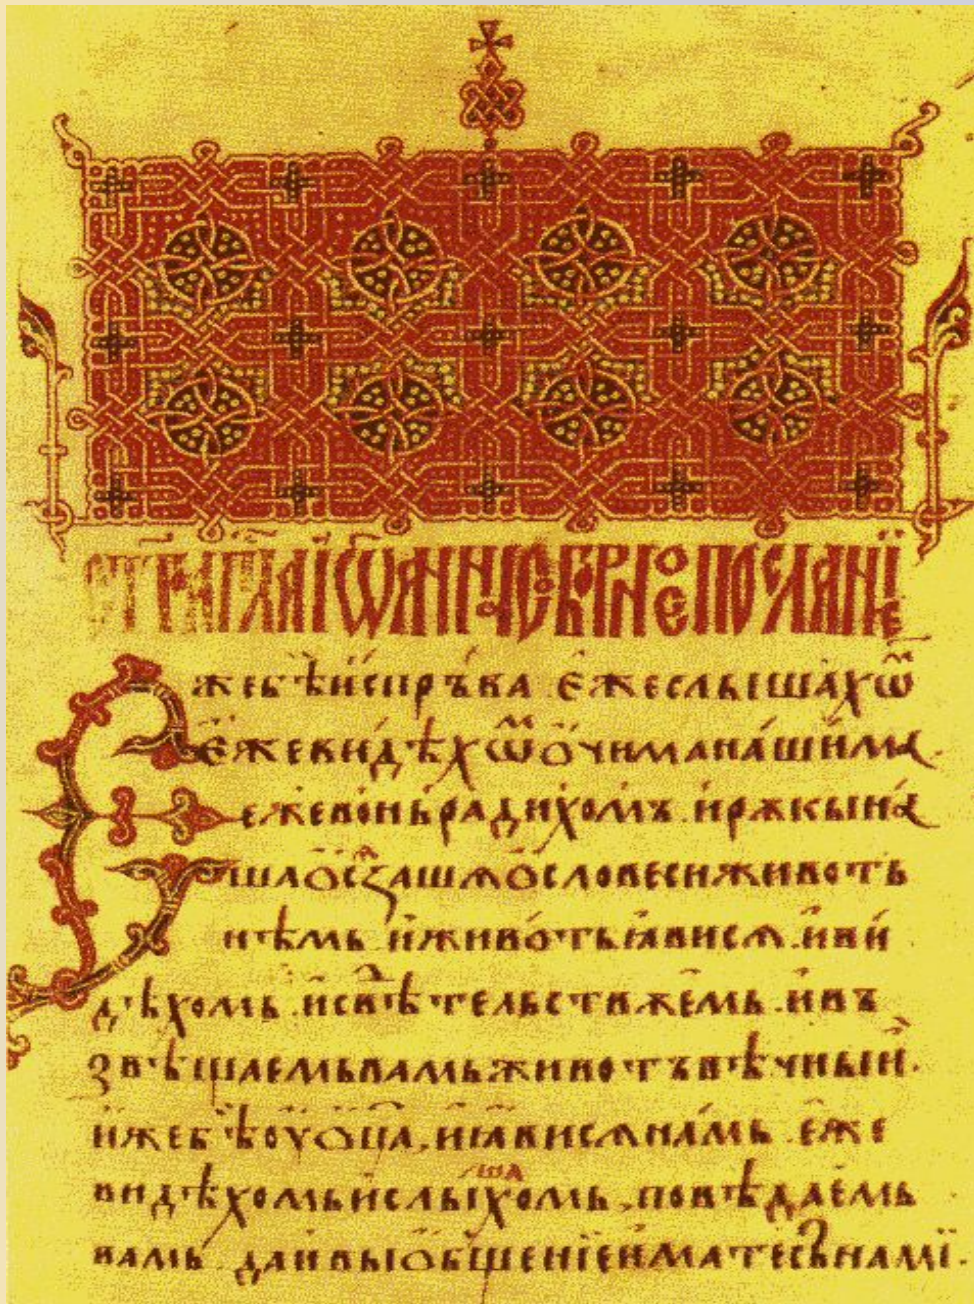 ст҃го ап҃ла іѡанна съборное посланїе
Еже бѣ испръва . еже слышахѡⷨ
еже видѣхѡⷨ ѻчима нашима .
еже вонь радихомъ . и рѫкы на
шѧ ѻсѧзашѧ ѻ словеси животь
нѣмь . и животь ꙗвисѧ . и ви
дѣхомь . и свⷣѣтельствꙋемь . и въ
звѣщаемь вамь животъ вѣчныи .
иже бѣ оу ѻц҃а , и ꙗвисѧ намь . еже
видѣхомь и слышахомь , повѣдаемь
вамь . да и вы ѻбщенїе имате съ намї .